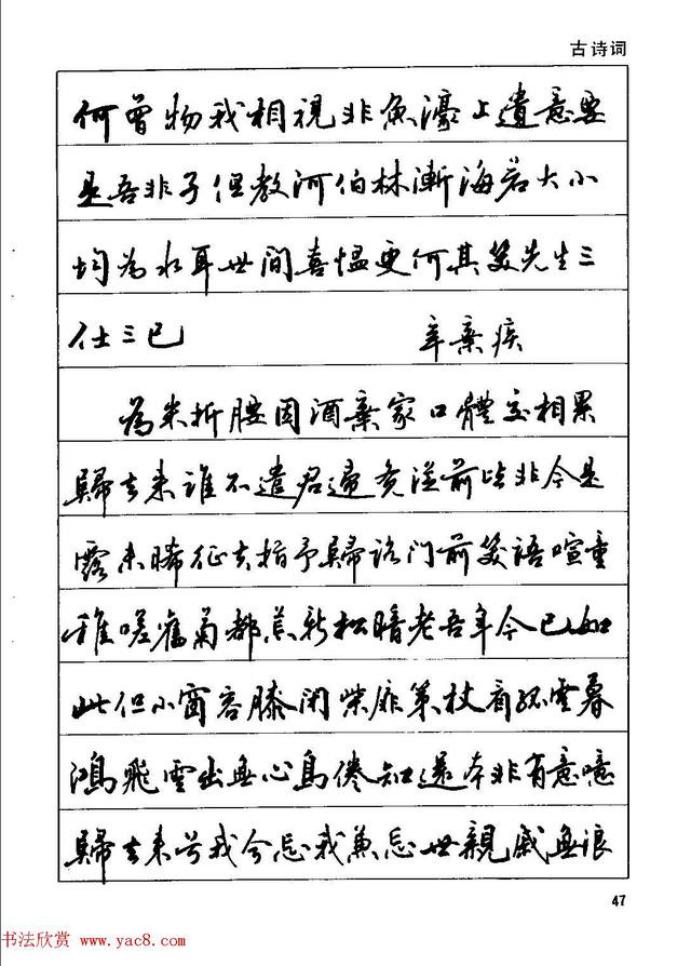 古诗词
何曾物我相視非魚濠上遺意要
是吾非子但教河伯休慚海若大小
均為水耳世間喜慍更何其笑先生三
仕三已 辛棄疾
為米折腰因酒棄家口體交相累
歸去來誰不遣君歸覺從前皆非今是
露未晞征夫指予歸路門前笑語喧童
稚嗟舊菊都荒新松暗老吾年今已如
此但小窗容膝閉柴扉策杖看孤雲暮
鴻飛雲出無心鳥倦知還本非有意噫
歸去來兮我今忘我兼忘世親戚無浪
47
书法欣赏 www.yac8.com